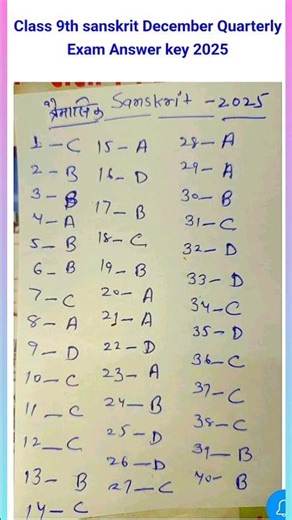 Class 9th sanskrit December Quarterly
Exam Answer key 2025
त्रैमासिक Sanskrit - 2025
1 - C
2 - B
3 - B
4 - A
5 - B
6 - B
7 - C
8 - A
9 - D
10 - C
11 - C
12 - C
13 - B
14 - C
15 - A
16 - D
17 - B
18 - C
19 - B
20 - A
21 - A
22 - D
23 - A
24 - B
25 - D
26 - D
27 - C
28 - A
29 - A
30 - B
31 - C
32 - D
33 - D
34 - C
35 - D
36 - C
37 - C
38 - C
31 - B
40 - B